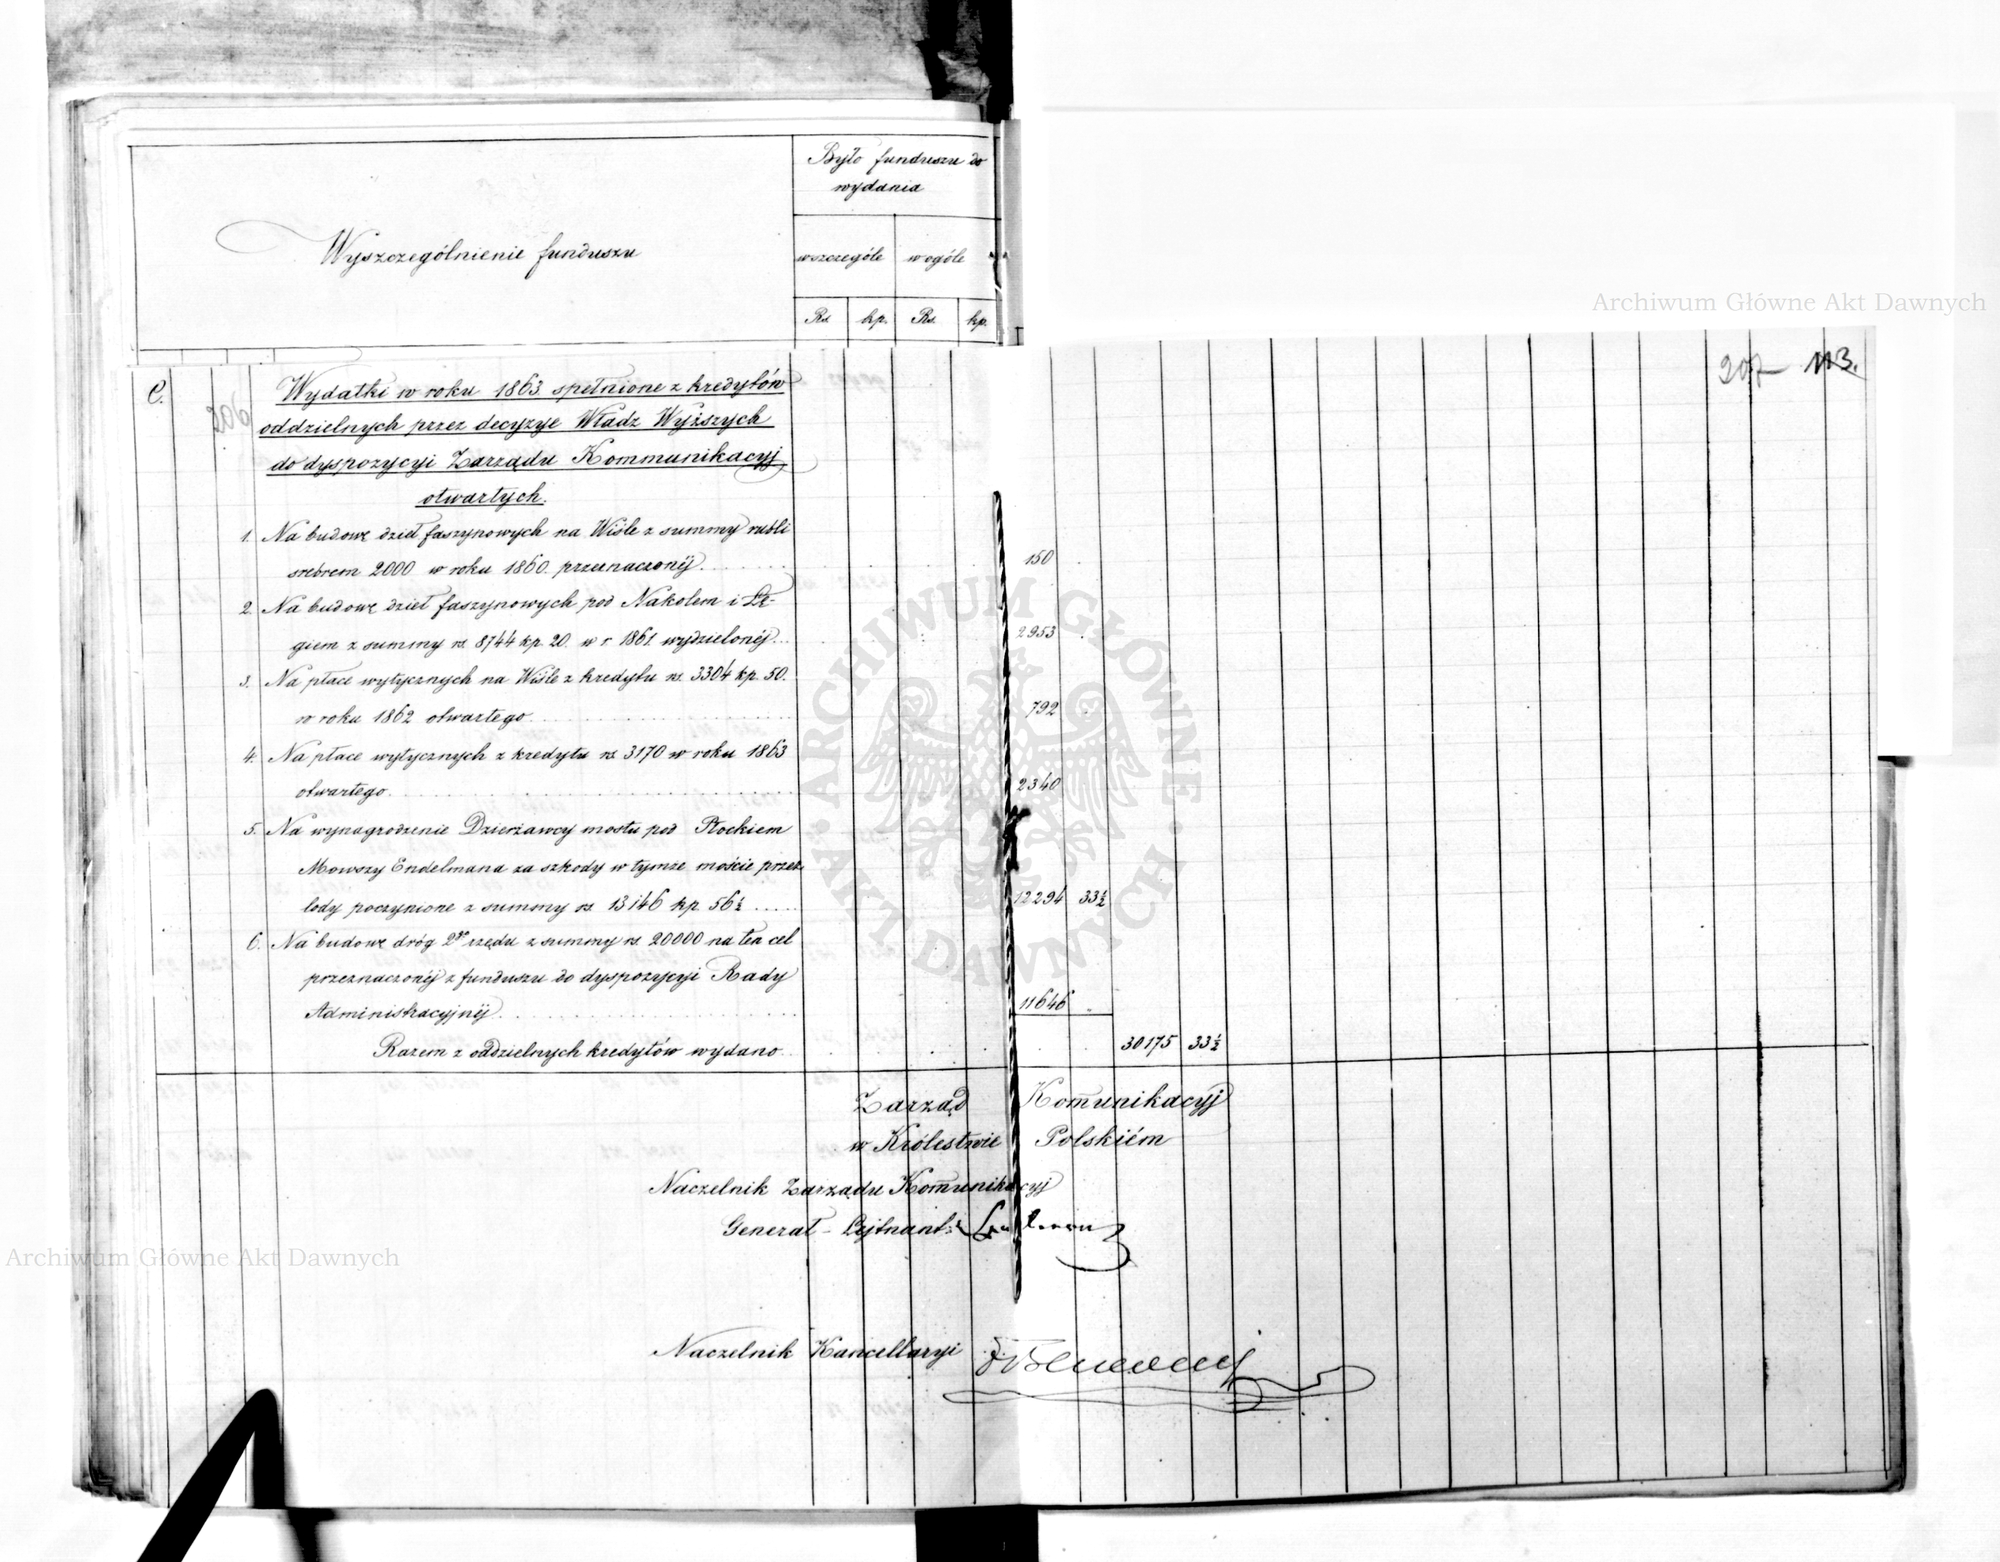 Było funduszu do
wydania
Wyszczególnienie funduszu
wszczególe
w ogóle
Rs.
kp.
Rs.
kp.
Archiwum Główne Akt Dawnych
207 113.
C.
Wydatki w roku 1863 spełnione z kredytów
oddzielnych przez decyzye Władz Wyższych
do dyspozycyi Zarządu Kommunikacyj
otwartych.
1. Na budowę dzieł faszynowych na Wiśle z summy rubli
srebrem 2000 w roku 1860. przeznaczonéj 150
2. Na budowę dzieł faszynowych pod Nakołem i Łę-
giem z summy rs. 8744 kp. 20. w r. 1861. wydzielonéj 2953
3. Na płace wytycznych na Wiśle z kredytu rs. 3304 kp. 50.
w roku 1862 otwartego 792
4. Na płace wytycznych z kredytu rs. 3170 w roku 1863
otwartego 2340
5. Na wynagrodzenie Dzierżawcy mostu pod Płockiem
Mowszy Endelmana za szkody w tymże moście przez
lody poczynione z summy rs. 13146 kp. 56½ 12294 33½
6. Na budowę dróg 2go rzędu z summy rs. 20000 na ten cel
przeznaczonéj z funduszu do dyspozycyi Rady
Administracyjnéj 11646 "
Razem z oddzielnych kredytów wydano 30175 33½
Zarząd Kom̄unikacyj
w Królestwie Polskiém
Naczelnik Zarządu Kom̄unikacyj
Generał - Lejtnant
Archiwum Główne Akt Dawnych
Naczelnik Kancellaryi
ARCHIWUM GŁÓWNE AKT DAWNYCH